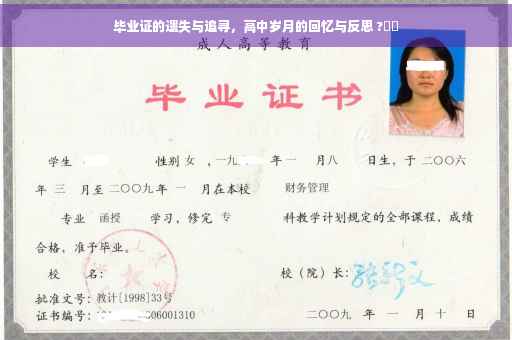 毕业证的遗失与追寻，高中岁月的回忆与反思？
成人高等教育
毕业证书
学生 性别 女 ，一九 年 一 月 八 日生，于二〇〇六
年 三 月至二〇〇九年 一 月在本校 财务管理
专业 函授 学习，修完 专 科教学计划规定的全部课程，成绩
合格，准予毕业。
校 名： 校（院）长：
批准文号：教计[1998]33号
证书编号： 06001310 二〇〇九 年 一 月 十 日